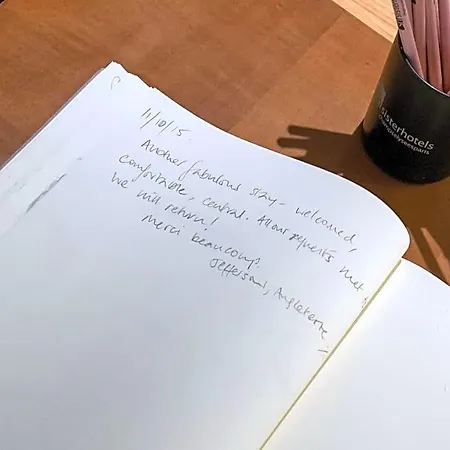 11/10/15.
Another fabulous stay - welcomed,
comfortable, central. All our requests met
We will return!
Merci beaucoup.
Jeffersons, Angleterre
sisterhotels